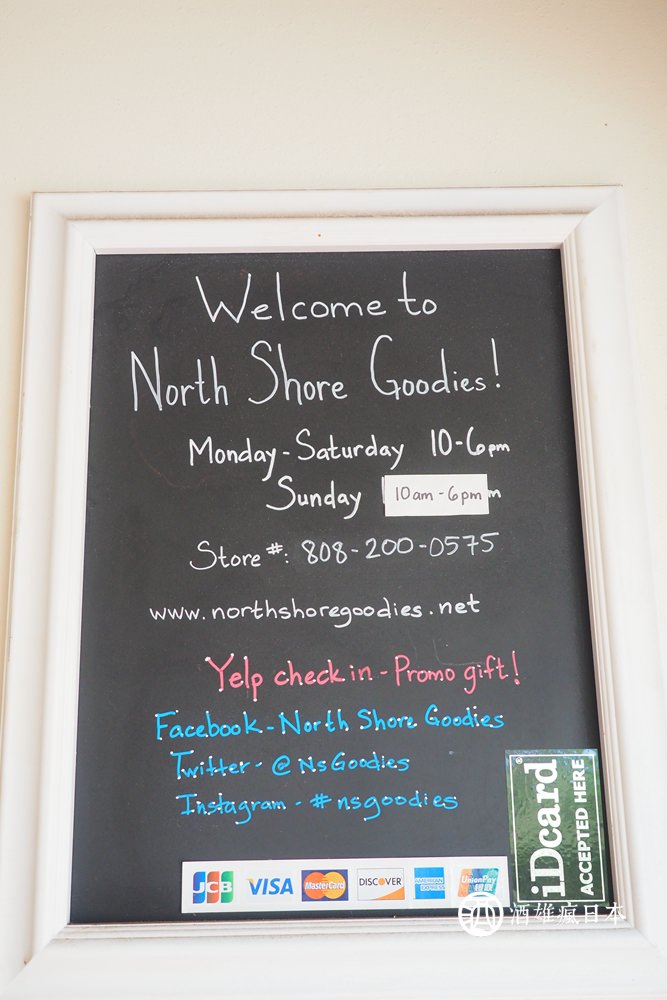 Welcome to
North Shore Goodies!
Monday-Saturday 10-6pm
Sunday 10am-6pm m
Store #: 808-200-0575
www.northshoregoodies.net
Yelp check in - Promo gift!
Facebook - North Shore Goodies
Twitter - @NsGoodies
Instagram - #nsgoodies
iDcard
ACCEPTED HERE
JCB VISA MasterCard DISCOVER AMERICAN EXPRESS UnionPay 银联
酒雄瘋日本